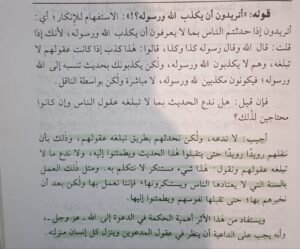 قوله: «أتريدون أن يكذب الله ورسوله؟!»: الاستفهام للإنكار؛ أي:
أتريدون إذا حدثتم الناس بما لا يعرفون أن يكذب الله ورسوله، لأنك إذا
قلت: قال الله وقال رسوله كذا وكذا، قالوا: هذا كذب إذا كانت عقولهم لا
تبلغه، وهم لا يكذبون الله ورسوله، ولكن يكذبونك بحديث تنسبه إلى الله
ورسوله؛ فيكونون مكذبين لله ورسوله، لا مباشرة ولكن بواسطة الناقل.
فإن قيل: هل ندع الحديث بما لا تبلغه عقول الناس وإن كانوا
محتاجين لذلك؟
أجيب: لا ندعه، ولكن نحدثهم بطريق تبلغه عقولهم، وذلك بأن
ننقلهم رويدًا رويدًا حتى يتقبلوا هذا الحديث ويطمئنوا إليه، ولا ندع ما لا
تبلغه عقولهم ونقول: هذا شيء مستنكر لا نتكلم به. ومثل ذلك العمل
بالسنة التي لا يعتادها الناس ويستنكرونها؛ فإننا نعمل بها ولكن بعد أن
نخبرهم بها؛ حتى تقبلها نفوسهم ويطمئنوا إليها.
ويستفاد من هذا الأثر أهمية الحكمة في الدعوة إلى الله ـ عز وجل ـ،
وأنه يجب على الداعية أن ينظر في عقول المدعوين وينزل كل إنسان منزلته.